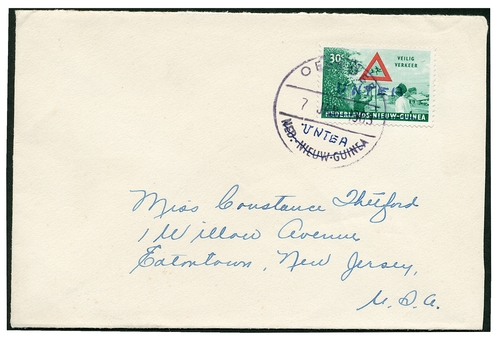 30c VEILIG
VERKEER
UNTEA
NEDERLANDS-NIEUW-GUINEA
7
UNTEA
NED.-NIEUW-GUINEA
Miss Constance Thetford
1 Willow Avenue
Eatontown, New Jersey,
U.S.A.